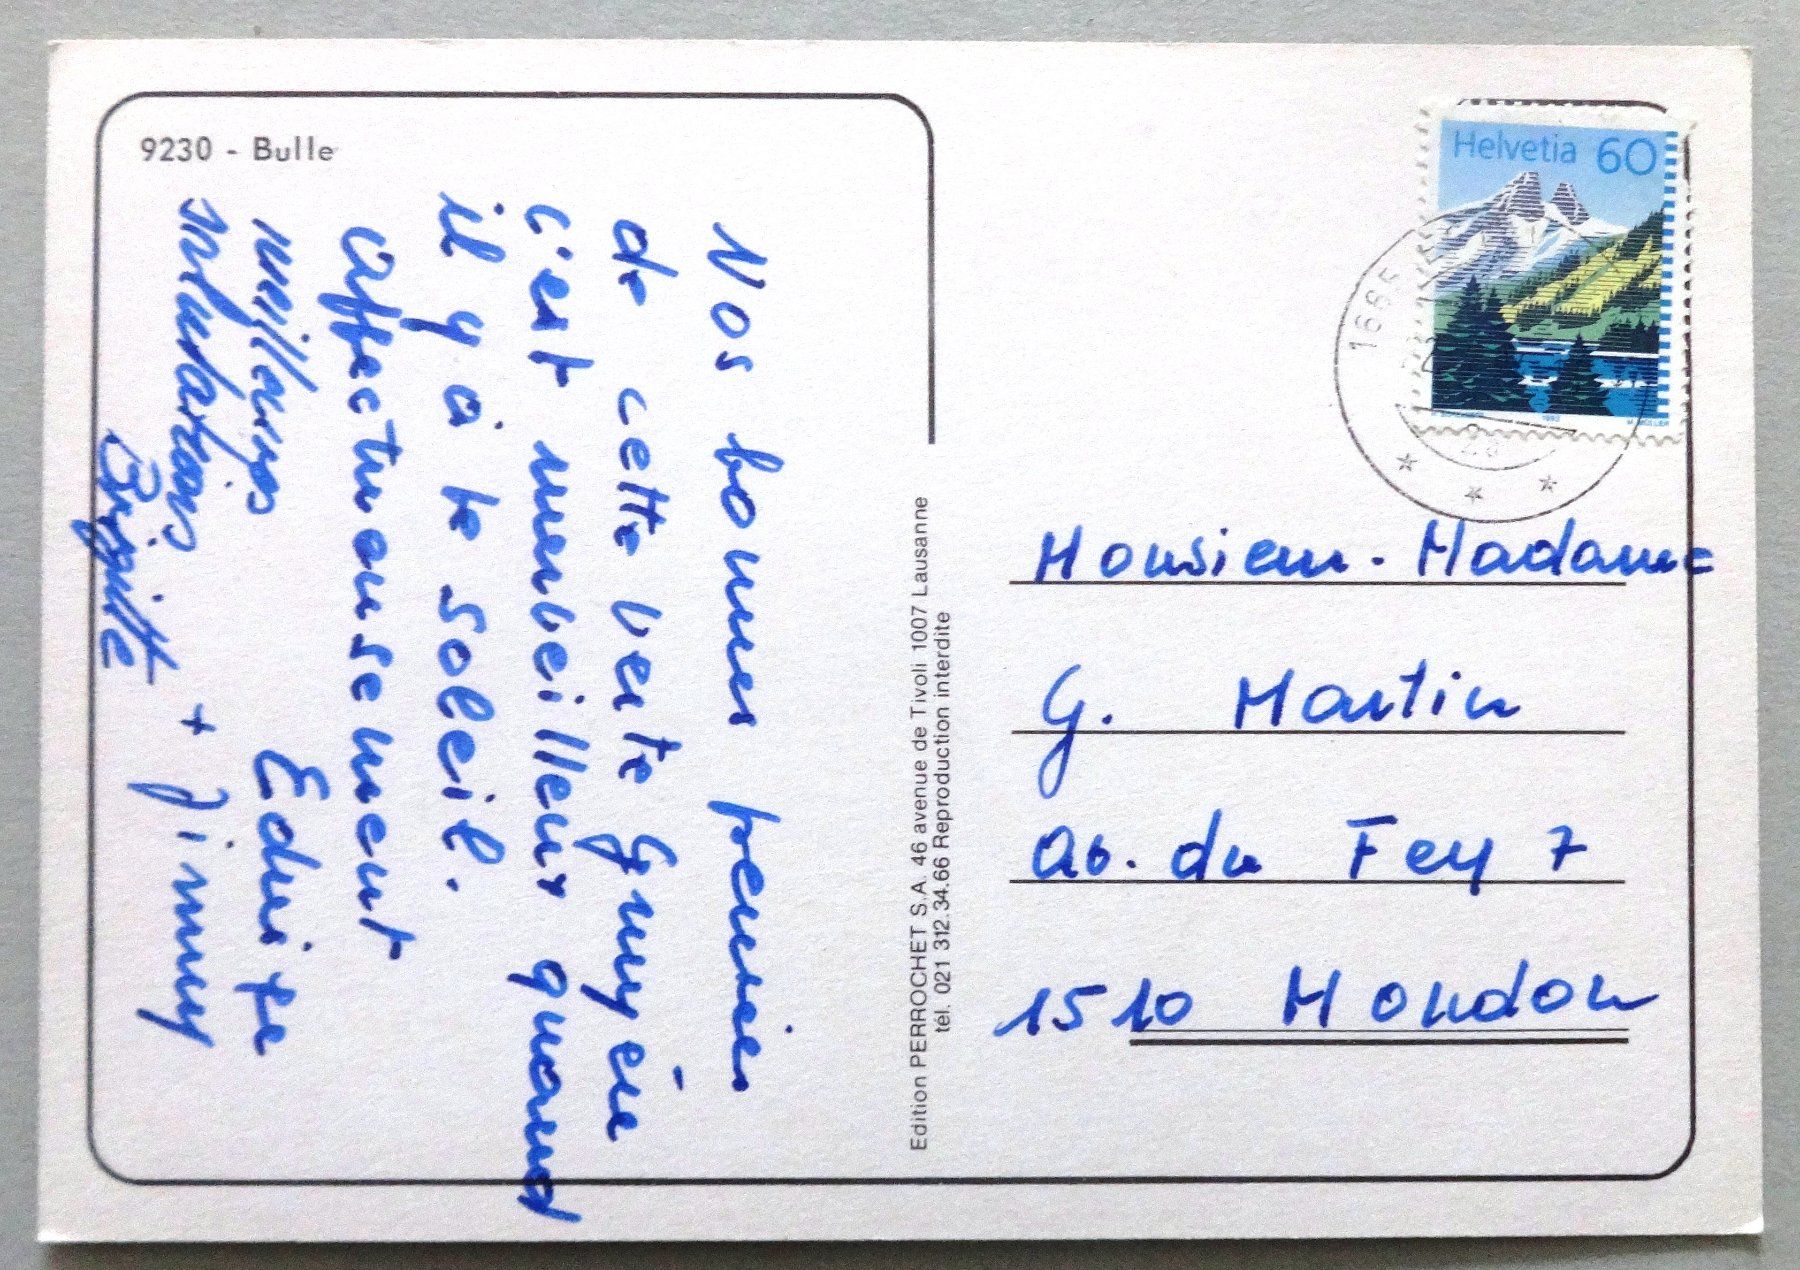 9230 - Bulle
Nos bonnes pensées
de cette verte Gruyère
c'est merveilleux quand
il y a le soleil.
Affectueusement
Edui te
meilleures
salutations
+ Jimmy
Brigitte
Edition PERROCHET S.A. 46 avenue de Tivoli 1007 Lausanne
tél. 021 312.34.66 Reproduction interdite
Helvetia 60
1993
M. MÜLLER
Monsieur - Madame
G. Martin
av. du Fey 7
1510 Moudon